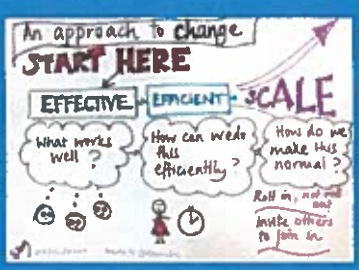 An approach to change
START HERE
EFFECTIVE
EFFICIENT
SCALE
What works
well?
How can we do
this
efficiently?
How do we
make this
normal?
Roll in, not roll
out
Invite others
to join in